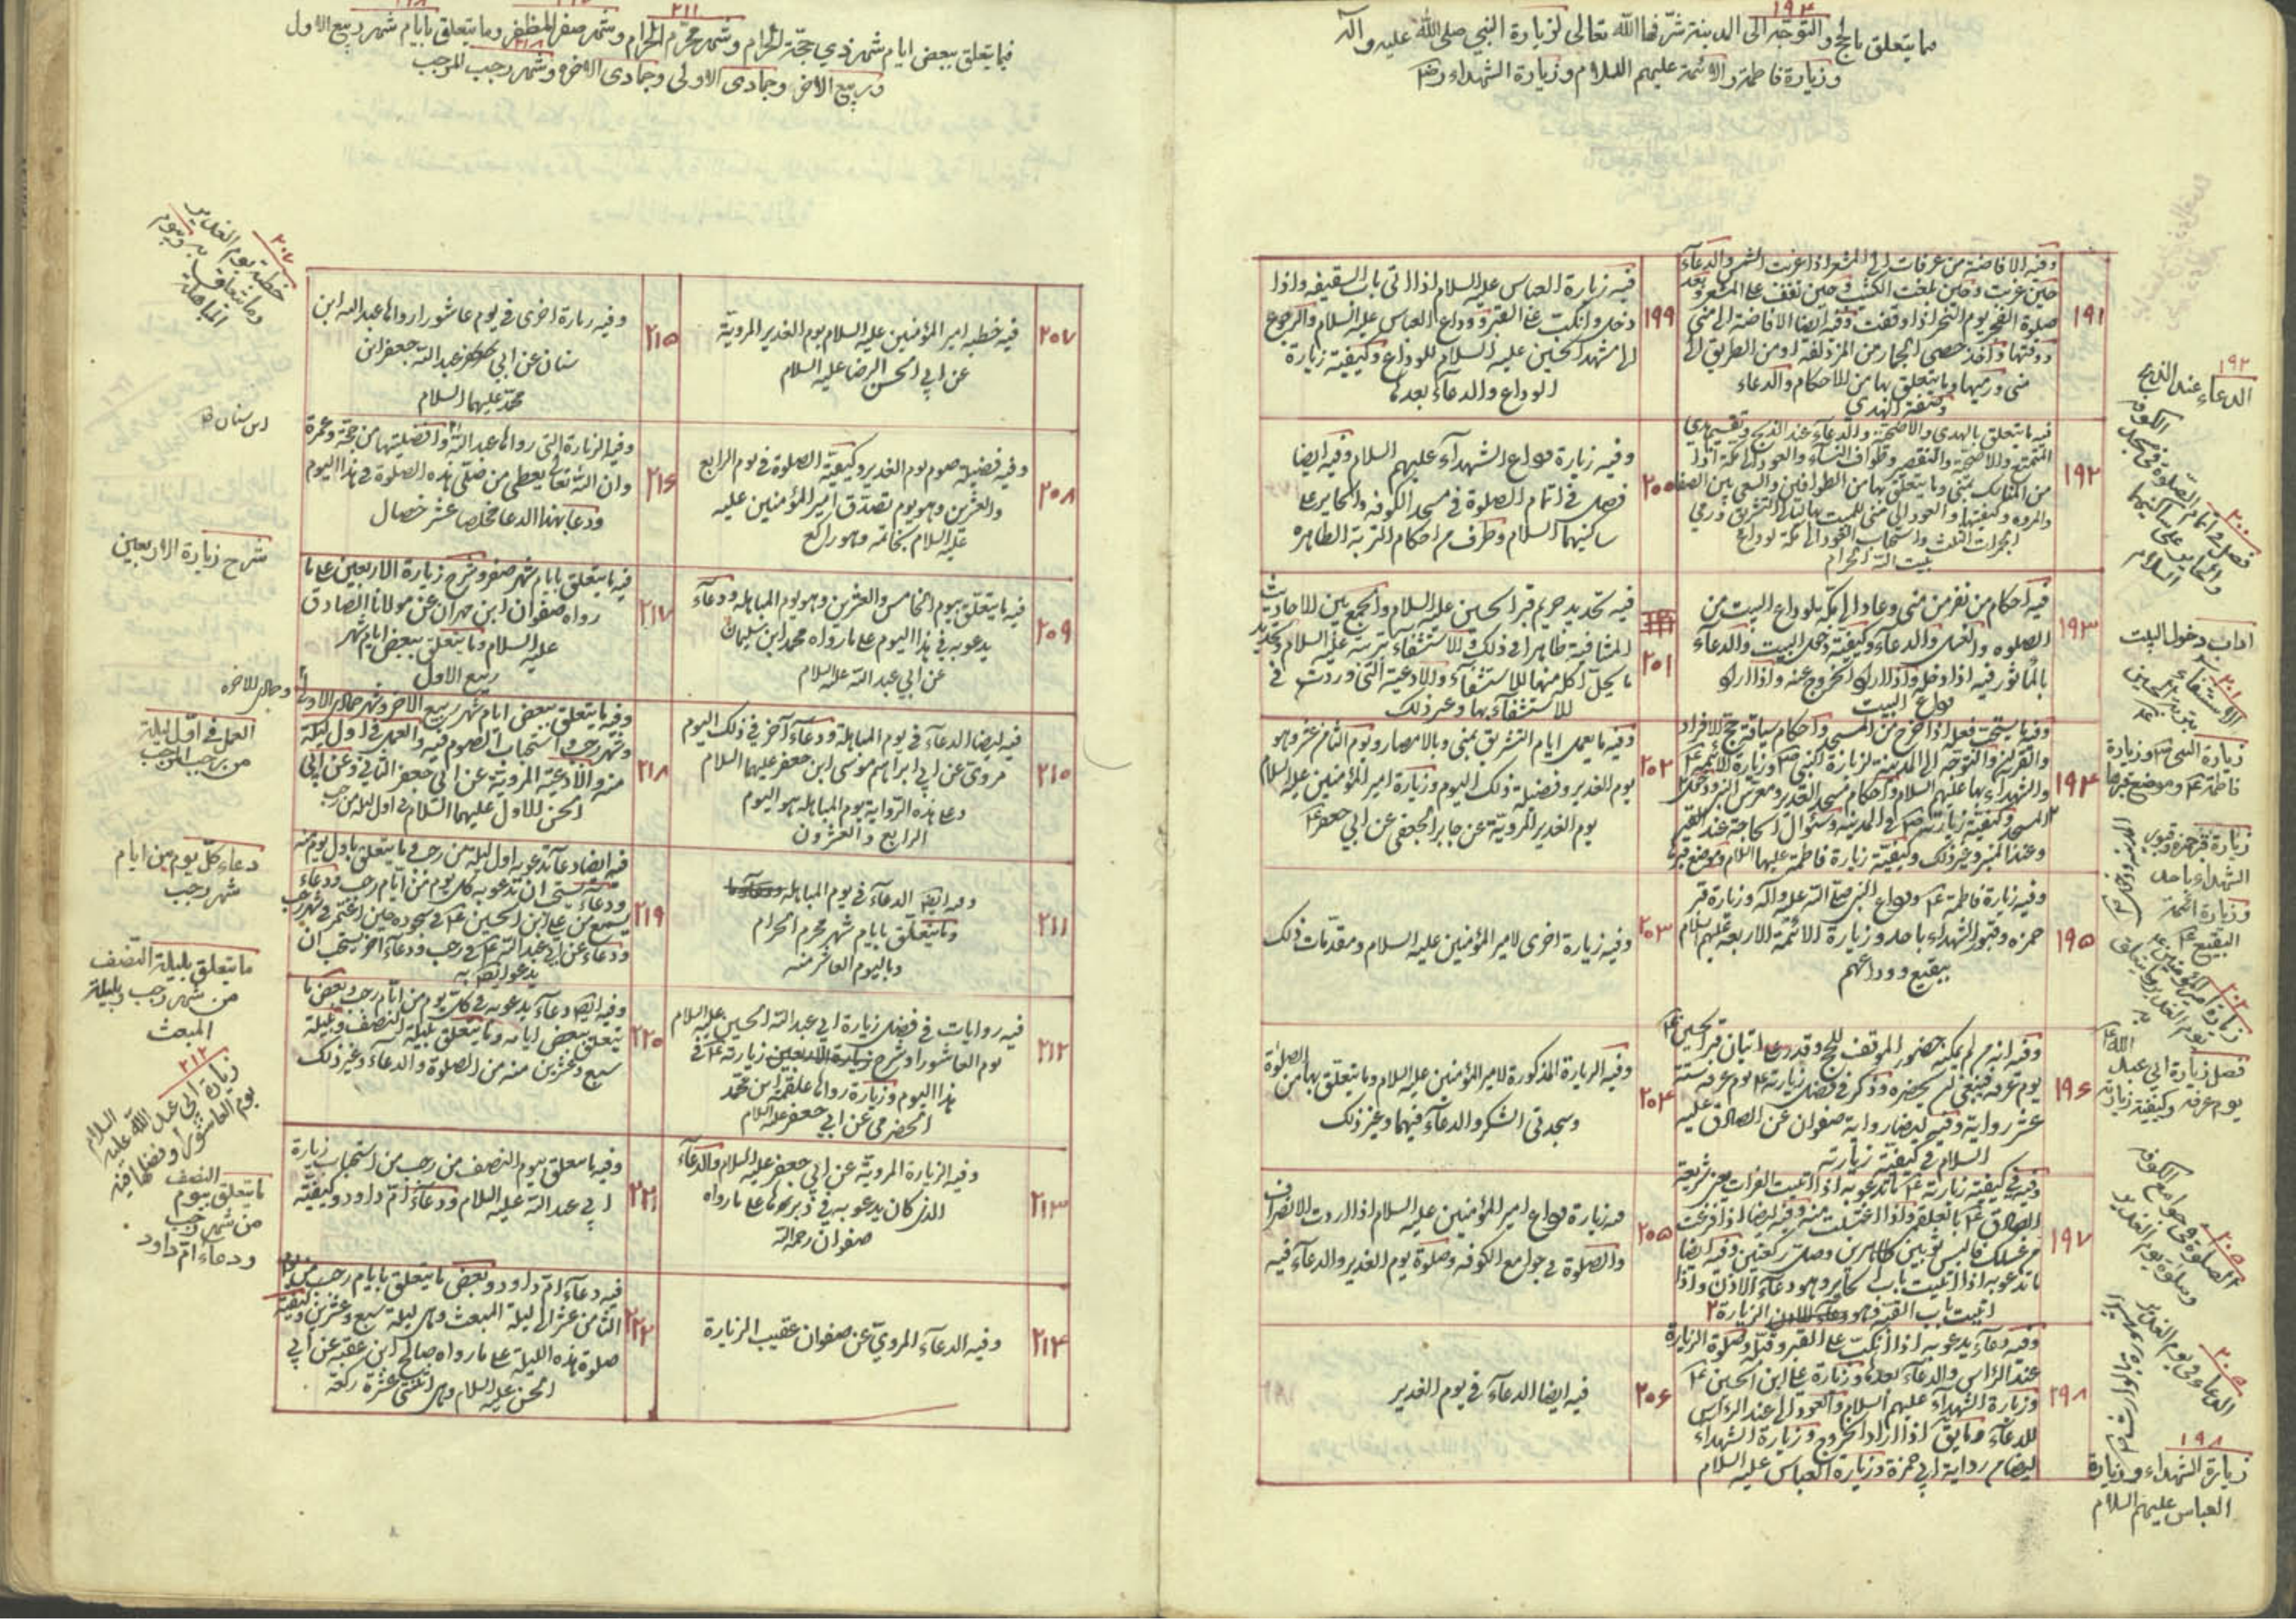 ١٩٤
ما يتعلق بالحج والتوجّه الى المدينة شرّفها الله تعالى لزيارة النبي صلى الله عليه وآله
وزيارة فاطمة والائمة عليهم السلام وزيارة الشهداء
١٩١
وفيه الافاضة من عرفات الى المشعر اذا غربت الشمس والدعآء
حين غربت وحين بلغت الكثيب وحين تقف على المشعر وبعد
صلوة الفجر يوم النحر اذا وقفت وفيه ايضا الافاضة الى منى
ووقتها واخذ حصى الجمار من المزدلفة او من الطريق الى
منى ورميها وما يتعلق بها من الاحكام والدعاء
وصفة الهدي
١٩٢
فيه ما يتعلق بالهدي والاضحية والدعآء عند الذبح وتقسيم هدي
المتمتع والاضحية والتقصير وطواف النسآء والعود الى مكة اذا
من المناسك بمنى وما يتعلق بها من الطوافين والسعي بين الصفا
والمروه وكيفيتها والعود الى منى للمبيت بها ليالي التشريق ورمي
الجمرات الثلث واستحباب العود الى مكة لوداع
بيت الله الحرام
١٩٣
فيه احكام من نفر من منى وعاد الى مكة لوداع البيت من
الصلوه والغسل والدعآء وكيفية دخول البيت والدعآء
بالمأثور فيه اذا دخله واذا اراد الخروج عنه واذا اراد
وداع البيت
١٩٤
وفيه ما يستحب فعله اذا خرج من المسجد واحكام سياقة حج الافراد
والقران والتوجه الى المدينة لزيارة النبي ص وزيارة الائمة ع
والشهداء بها عليهم السلام واحكام مسجد الغدير ومعرس النبي ودخول
المسجد وكيفية زيارته ص في المدينة وسؤال الحاجة عند القبر
وعند المنبر وغير ذلك وكيفية زيارة فاطمة عليها السلام وموضع قبرها
١٩٥
وفيه زيارة فاطمة ع ووداع النبي صلى الله عليه وآله وزيارة قبر
حمزه وقبور الشهداء باحد وزيارة الائمة الاربعة عليهم السلام
ببقيع ووداعهم
١٩٦
وفيه انه من لم يمكنه حضور الموقف للحج وقدر على اتيان قبر الحسين ع
يوم عرفه فينبغي ان يحضره وذكر في فضل زيارته ع يوم عرفه ستة
عشر رواية وفيه ايضا رواية صفوان عن الصادق عليه
السلام في كيفية زيارته
١٩٧
وفيه في كيفية زيارته ع ما تدعو به اذا اتيت الفرات يعني شريعة
الصادق ع بالعلقمي واذا اغتسلت منه وفيه ايضا اذا فرغت
من غسلك فالبس ثوبين طاهرين وصل ركعتين وفيه ايضا
ما تدعو به اذا اتيت باب الحاير وهو دعآء الاذن واذا
اتيت باب القبة الزيارة
١٩٨
وفيه دعآء يدعو به اذا انكبت على القبر وقبّله وصلوة الزيارة
عند الراس والدعآء بعدها وزيارة على ابن الحسين ع
وزيارة الشهدآء عليهم السلام والعود الى عند الراس
للدعآء وما يق اذا اراد الخروج وزيارة الشهدآء
ايضا من رواية ابي حمزة وزيارة العباس عليه السلام
١٩٩
فيه زيارة العباس عليه السلام اذا اتى باب السقيفه واذا
دخل وانكبت على القبر ووداع العباس عليه السلام والرجوع
الى مشهد الحسين عليه السلام للوداع وكيفية زيارة
الوداع والدعآء بعدها
٢٠٠
وفيه زيارة وداع الشهدآء عليهم السلام وفيه ايضا
فصل في اتمام الصلوة في مسجد الكوفه والحاير على
ساكنيهما السلام وطرف من احكام التربة الطاهره
٢٠١
فيه تحديد حريم قبر الحسين عليه السلام والجمع بين الاحاديث
المتنافية ظاهرا في ذلك والاستشفآء بتربته عليه السلام وتحديد
ما يحل اكله منها للاستشفآء والادعية التى وردت في
الاستشفآء بها وغير ذلك
٢٠٢
وفيه ما يعمل ايام التشريق بمنى وبالامصار ويوم الثامن عشر وهو
يوم الغدير وفضيلة ذلك اليوم وزيارة امير المؤمنين عليه السلام
يوم الغدير المروية عن جابر الجعفى عن ابي جعفر ع
٢٠٣
وفيه زيارة اخرى لامير المؤمنين عليه السلام ومقدمات ذلك
٢٠٤
وفيه الزيارة المذكورة لامير المؤمنين عليه السلام وما يتعلق بها من الصلوة
وسجدتى الشكر والدعآء فيهما وغير ذلك
٢٠٥
فيه زيارة وداع امير المؤمنين عليه السلام اذا اردت الانصراف
والصلوة في جوامع الكوفه وصلوة يوم الغدير والدعآء فيه
٢٠٦
فيه ايضا الدعآء في يوم الغدير
١٩٢
الدعاء عند الذبح
٢٠٠
فصل في اتمام الصلوة في مسجد الكوفه
والحاير على ساكنيهما
السلام
اداب دخول البيت
٢٠١
الاستشفاء
بتربة الحسين
ع
زيارة النبى ص وزيارة
فاطمة ع وموضع قبرها
زيارة قبر حمزه وقبور
الشهداء باحد
وزيارة ائمة
البقيع ع
٢٠٢
زيارة امير المؤمنين ع
يوم الغدير وما يتعلق
به
فضل زيارة ابي عبد الله ع
يوم عرفه وكيفية زيارته
٢٠٥
الصلوة في جوامع الكوفه
وصلوة يوم الغدير
٢٠٥
الدعاء في يوم الغدير
١٩٨
زيارة الشهداء وزيارة
العباس عليهم السلام
٢١١
فيما يتعلق ببعض ايام شهر ذي حجّة الحرام وشهر محرّم الحرام وشهر صفر المظفر وما يتعلق بايام شهر ربيع الاول
٢١٨
وربيع الاخر وجمادى الاولى وجمادى الاخره وشهر رجب المرجب
٢٠٧
فيه خطبه امير المؤمنين عليه السلام يوم الغدير المرويّة
عن ابي الحسن الرضا عليه السلام
٢٠٨
وفيه فضيلة صوم يوم الغدير وكيفية الصلوة في يوم الرابع
والعشرين وهو يوم تصدّق امير المؤمنين عليه
عليه السلام بخاتمه وهو راكع
٢٠٩
فيه ما يتعلق بيوم الخامس والعشرين وهو يوم المباهله ودعآء
يدعو به في هذا اليوم على ما رواه محمد ابن سليمان
عن ابي عبد الله عليه السلام
٢١٠
فيه ايضا الدعآء في يوم المباهلة ودعآء آخر في ذلك اليوم
مروى عن ابي ابراهيم موسى ابن جعفر عليهما السلام
وعلى هذه الرواية يوم المباهله هو اليوم
الرابع والعشرون
٢١١
وفيه ايضا الدعآء في يوم المباهله
وما يتعلق بايام شهر محرم الحرام
وباليوم العاشر منه
٢١٢
فيه روايات في فضل زيارة ابي عبد الله الحسين عليه السلام
يوم العاشورا وشرح زيارته ع في
هذا اليوم وزيارة رواها علقمة ابن محمد
الحضرمى عن ابي جعفر عليه السلام
٢١٣
وفيه الزيارة المرويّة عن ابي جعفر عليه السلام والدعآء
الذى كان يدعو به في دبرها على ما رواه
صفوان رحمه الله
٢١٤
وفيه الدعآء المرويّ عن صفوان عقيب الزيارة
٢١٥
وفيه زيارة اخرى في يوم عاشورا رواها عبد الله ابن
سنان عن ابي عبد الله جعفر ابن
محمد عليهما السلام
٢١٦
وفيه الزيارة التى رواها عبد الله وافضليتها من حجة وعمرة
وان الله تعالى يعطى من صلى هذه الصلوة في هذا اليوم
ودعا بهذا الدعا مخلصا عشر خصال
٢١٧
فيه ما يتعلق بايام شهر صفر وشرح زيارة الاربعين على ما
رواه صفوان ابن مهران عن مولانا الصادق
عليه السلام وما يتعلق ببعض ايام شهر
ربيع الاول
٢١٨
وفيه ما يتعلق ببعض ايام شهر ربيع الاخر وشهر جمادى الاولى
وشهر رجب واستحباب الصوم فيه والعمل في اول ليلة
منه والادعية المروية عن ابي جعفر الثاني وعن ابي
الحسن الاول عليهما السلام في اول ليله من رجب
٢١٩
فيه ايضا دعآء تدعو به اول ليله من رجب وما يتعلق باول يوم منه
ودعآء يستحب ان تدعو به كل يوم من ايام رجب ودعآء
سمع من على ابن الحسين ع في سجوده حين اعتمر في شهر رجب
ودعآء عن ابي عبد الله ع في رجب ودعآء آخر يستحب ان
يدعو ايضا به
٢٢٠
وفيه ايضا دعآء يدعو به في كل يوم من ايام رجب وبعض ما
يتعلق ببعض ايامه وما يتعلق بليلة النصف وبليلة
سبع وعشرين منه من الصلوة والدعاء وغير ذلك
٢٢١
وفيه ما يتعلق بيوم النصف من رجب من استحباب زيارة
ابي عبد الله عليه السلام ودعآء ام داود وكيفيّته
٢٢٢
فيه دعآء ام داود وبعض ما يتعلق بايام رجب من يوم
الثامن عشر الى ليلة المبعث وهى ليلة سبع وعشرين وكيفية
صلوة هذه الليلة على ما رواه صالح ابن عقبه عن ابي
الحسن عليه السلام وهى اثنتى عشرة ركعة
٢٠٧
خطبة يوم الغدير
وما يتعلق به ويوم
المباهلة
ابن سنان
شرح زيارة الاربعين
وجمادى الاخره
العمل في اوّل ليلة
من رجب المرجب
دعاء كلّ يوم من ايام
شهر رجب
ما يتعلق بليلة النّصف
من شهر رجب وبليلة
المبعث
٢١٢
زيارة ابي عبد الله عليه السلام
يوم العاشورا وفضلها فيه
ما يتعلق بيوم النصف
من شهر رجب
ودعاء امّ داود